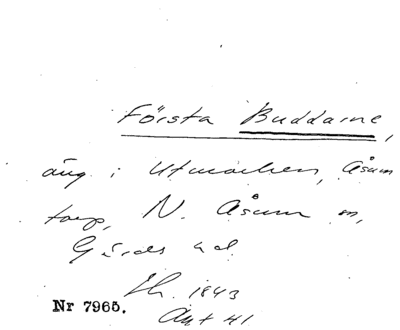 Första Buddarne,
äng i Utmarken, Åsum
torp, N. Åsum sn,
Gärds hd.
Sk. 1843
Nr 7965.
Akt 41